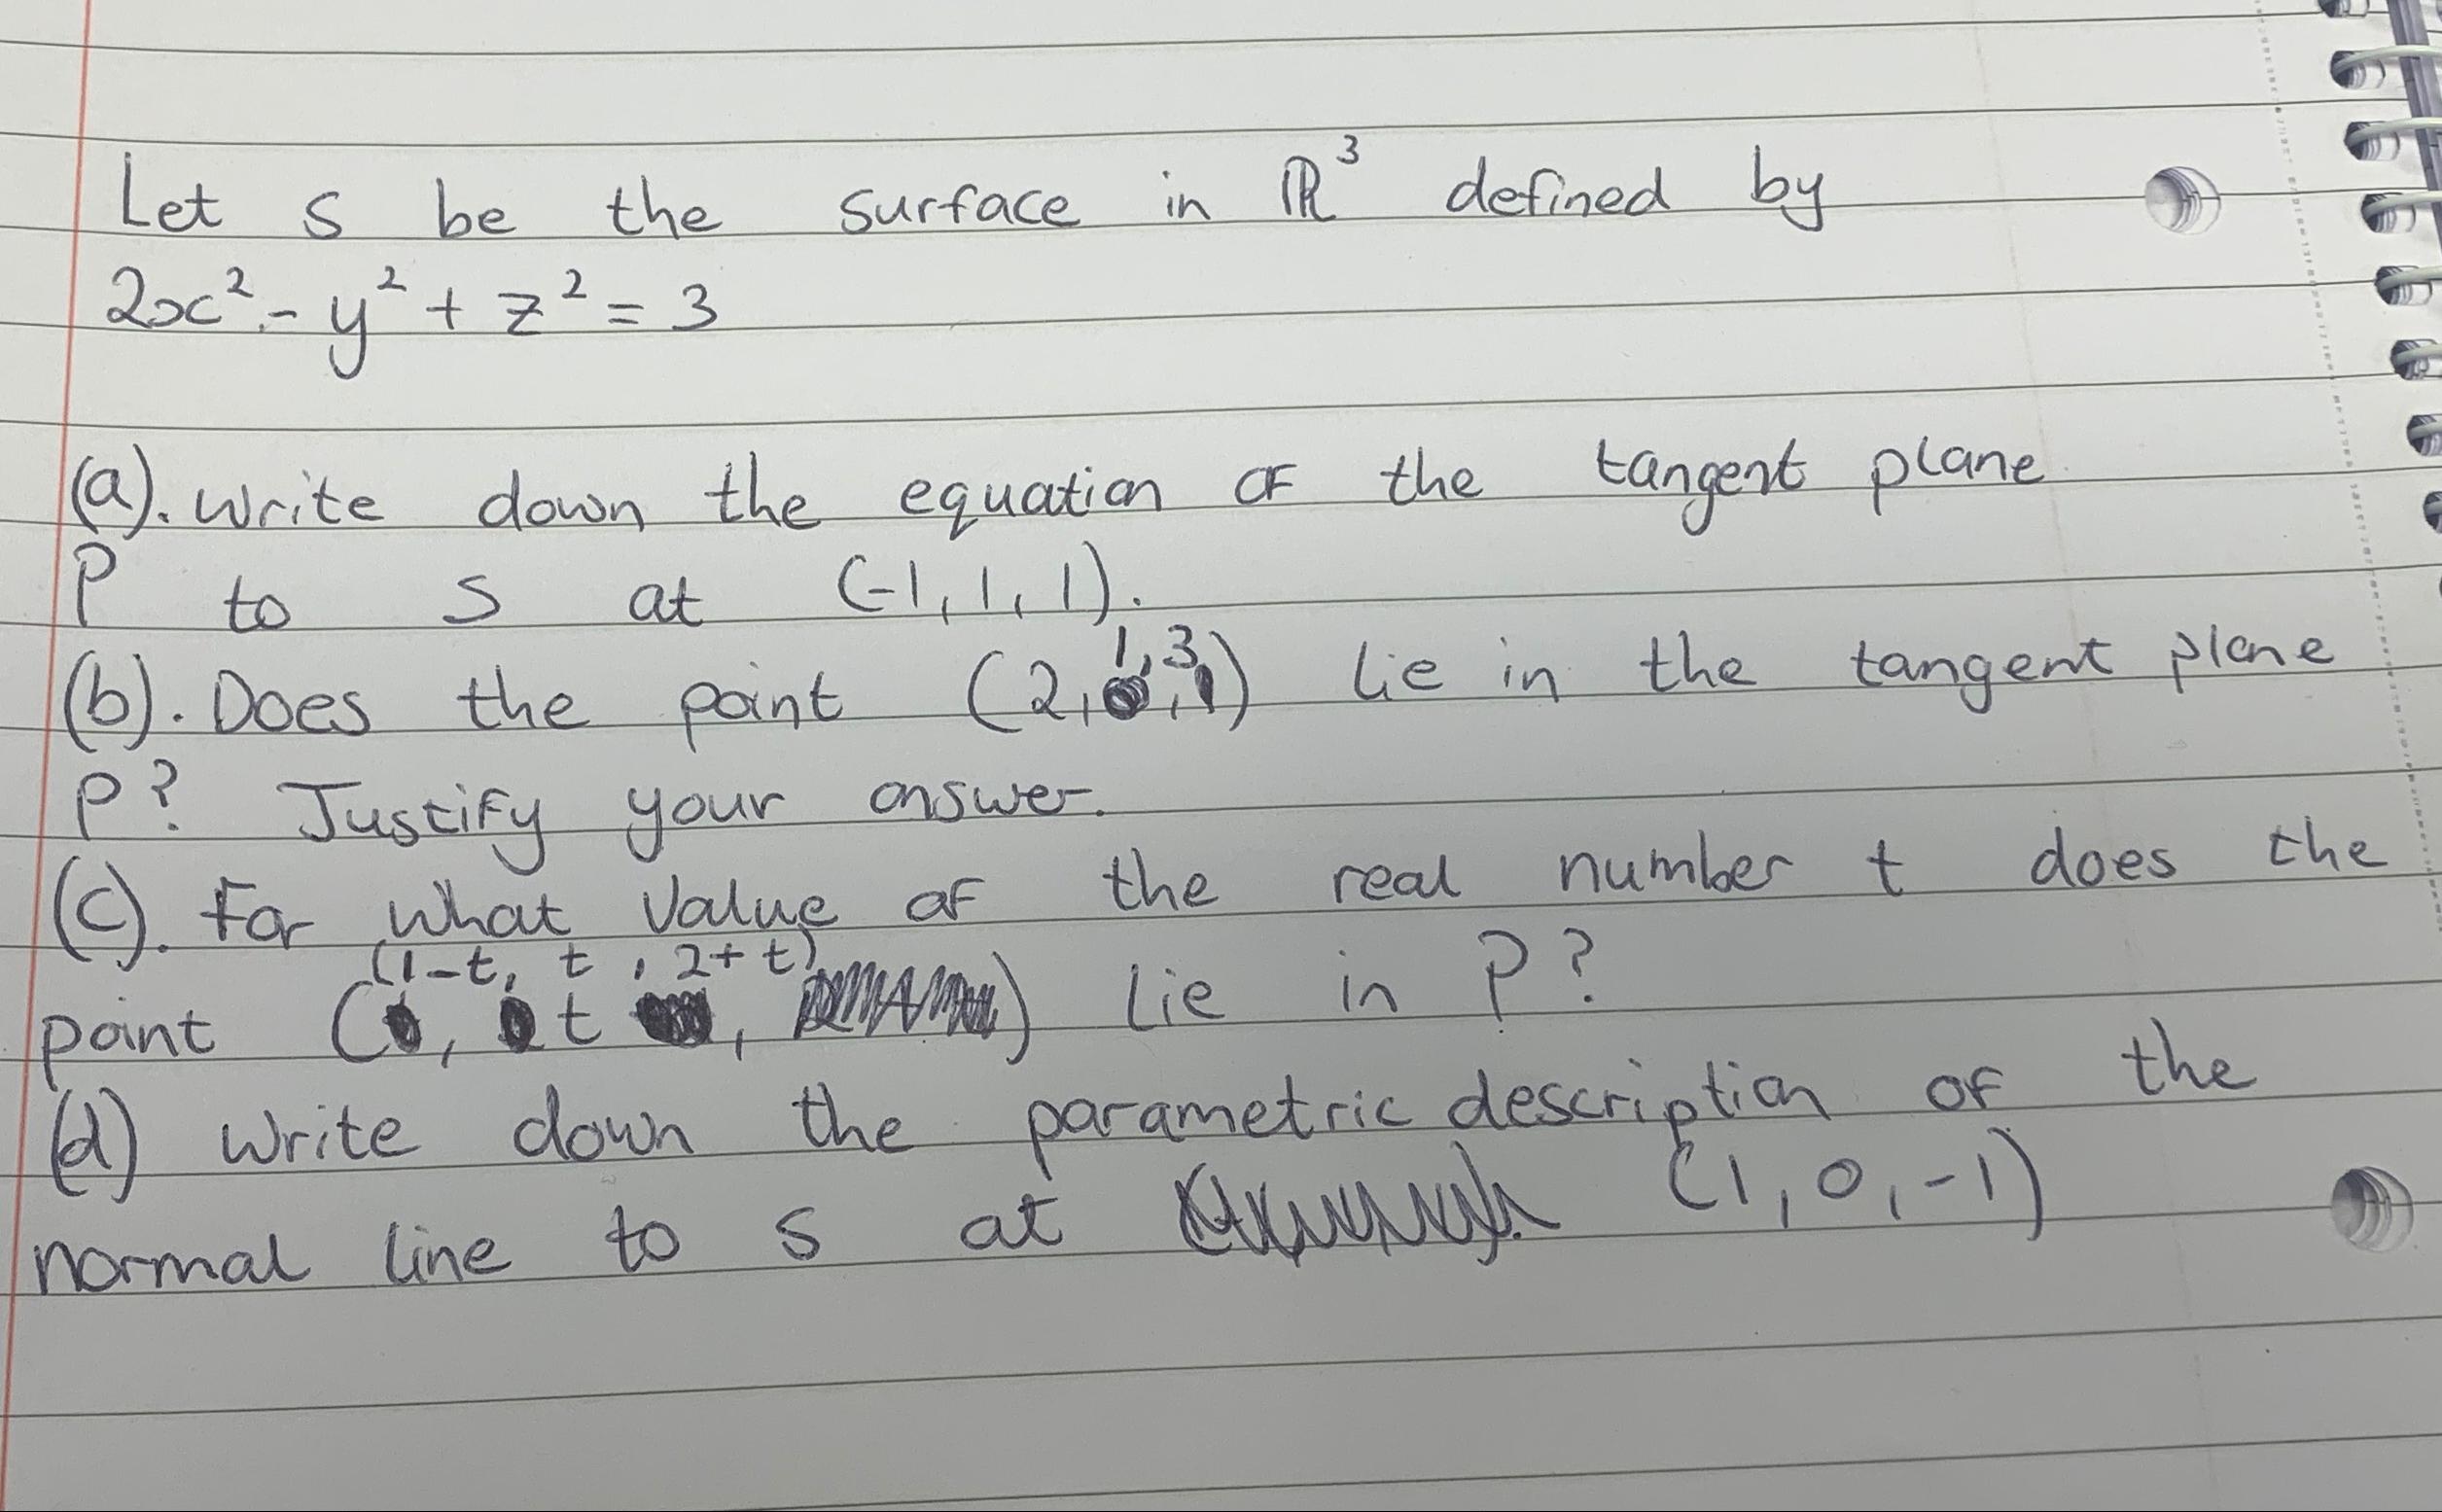 Let S be the surface in ℝ³ defined by
2x² - y² + z² = 3
(a). Write down the equation of the tangent plane
P to S at (-1, 1, 1).
(b). Does the point (2, 1, 3) lie in the tangent plane
P? Justify your answer.
(c). For what value of the real number t does the
point (1-t, t, 2+t) lie in P?
(d) Write down the parametric description of the
normal line to S at (1, 0, -1)